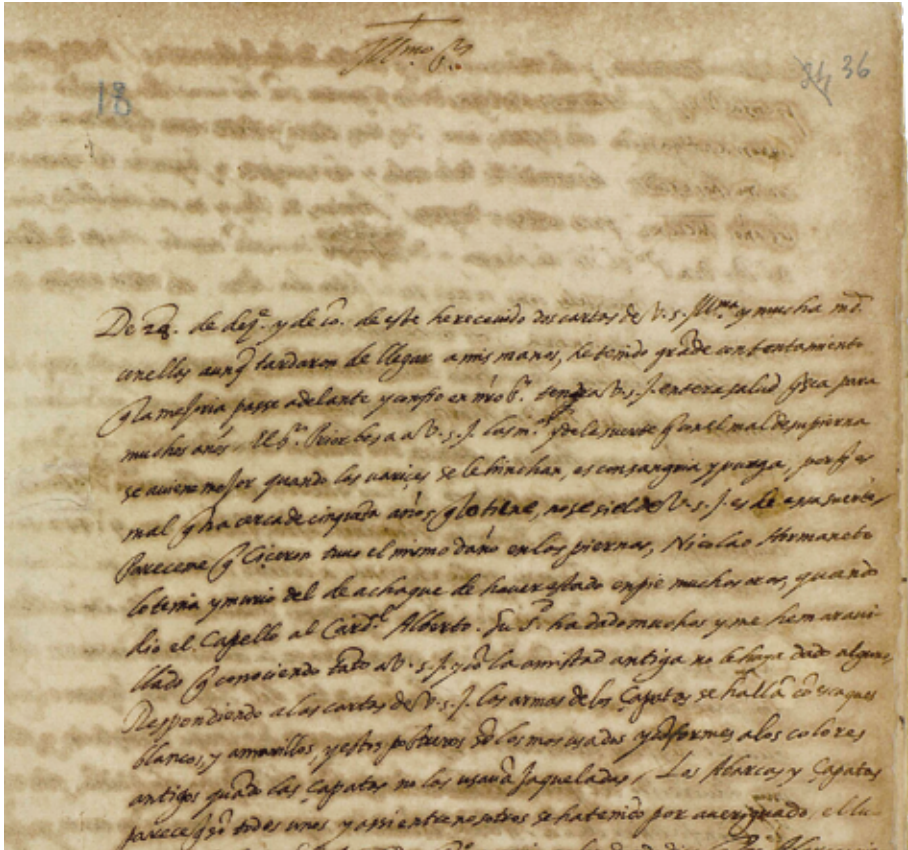 Ill.mo S.or
18
84 36
De 28. de dez.e y de 10. de este he recevido dos cartas de V. s. Ill.ma y mucha m.d
con ellas aunq̃ tardaron de llegar a mis manos, he tenido grãde contentamiento
q̃ la mejoria passe adelante y confio en nr̃o s.or tendra V. s. I. entera salud q̃ sea para
muchos años. El s.or Prior besa a V. s. I. las m.s de la suerte q̃ con el mal de su pierna
se aviene mejor quando las variçes se le hinchan, es con sangria y purga, porq̃ es
mal q̃ ha cerca de cinquẽta años q̃ lo tiene, no se si el de V. s. I. es de essa suerte,
Pareceme q̃ Ciceron tuvo el mismo daño en las piernas, Nicolao Hormaneto
lo tenia y murio del de achaque de haver estado en pie muchas oras, quando
dio el Capello al Card.l Alberto. Su S.d ha dado muchos y me he maravi-
llado q̃ conociendo tãto a V. s. I. y cõ la amistad antiga no le haya dado alguno,
Respondiendo a las cartas de V. s. I. las armas de los Çapatas se hallã cõ escaques
blancos, y amarillos, y estos postreros sõ los mas usados y cõformes a los colores
antigos quãdo las çapatas no las usavã jaqueladas, Los Abarcas y Çapatas
parece q̃ sõ todos unos y assi entre nosotros se ha tenido por averiguado,